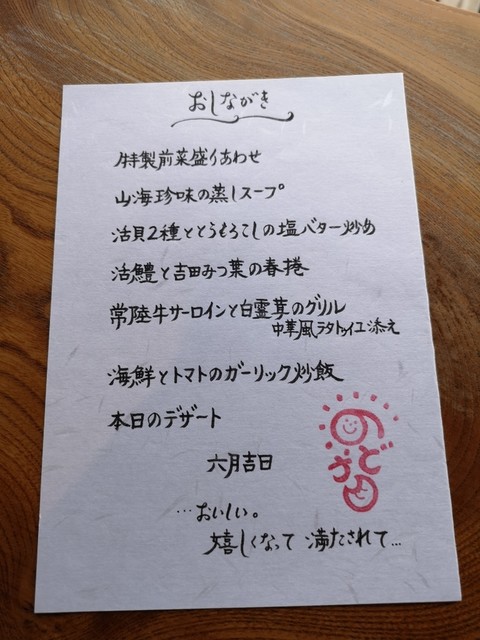 おしながき
特製前菜盛りあわせ
山海珍味の蒸しスープ
活貝2種ととうもろこしの塩バター炒め
活鱧と吉田みつ葉の春捲
常陸牛サーロインと白霊茸のグリル
中華風ラタトゥイユ添え
海鮮とトマトのガーリック炒飯
本日のデザート
六月吉日
…おいしい。
嬉しくなって 満たされて…